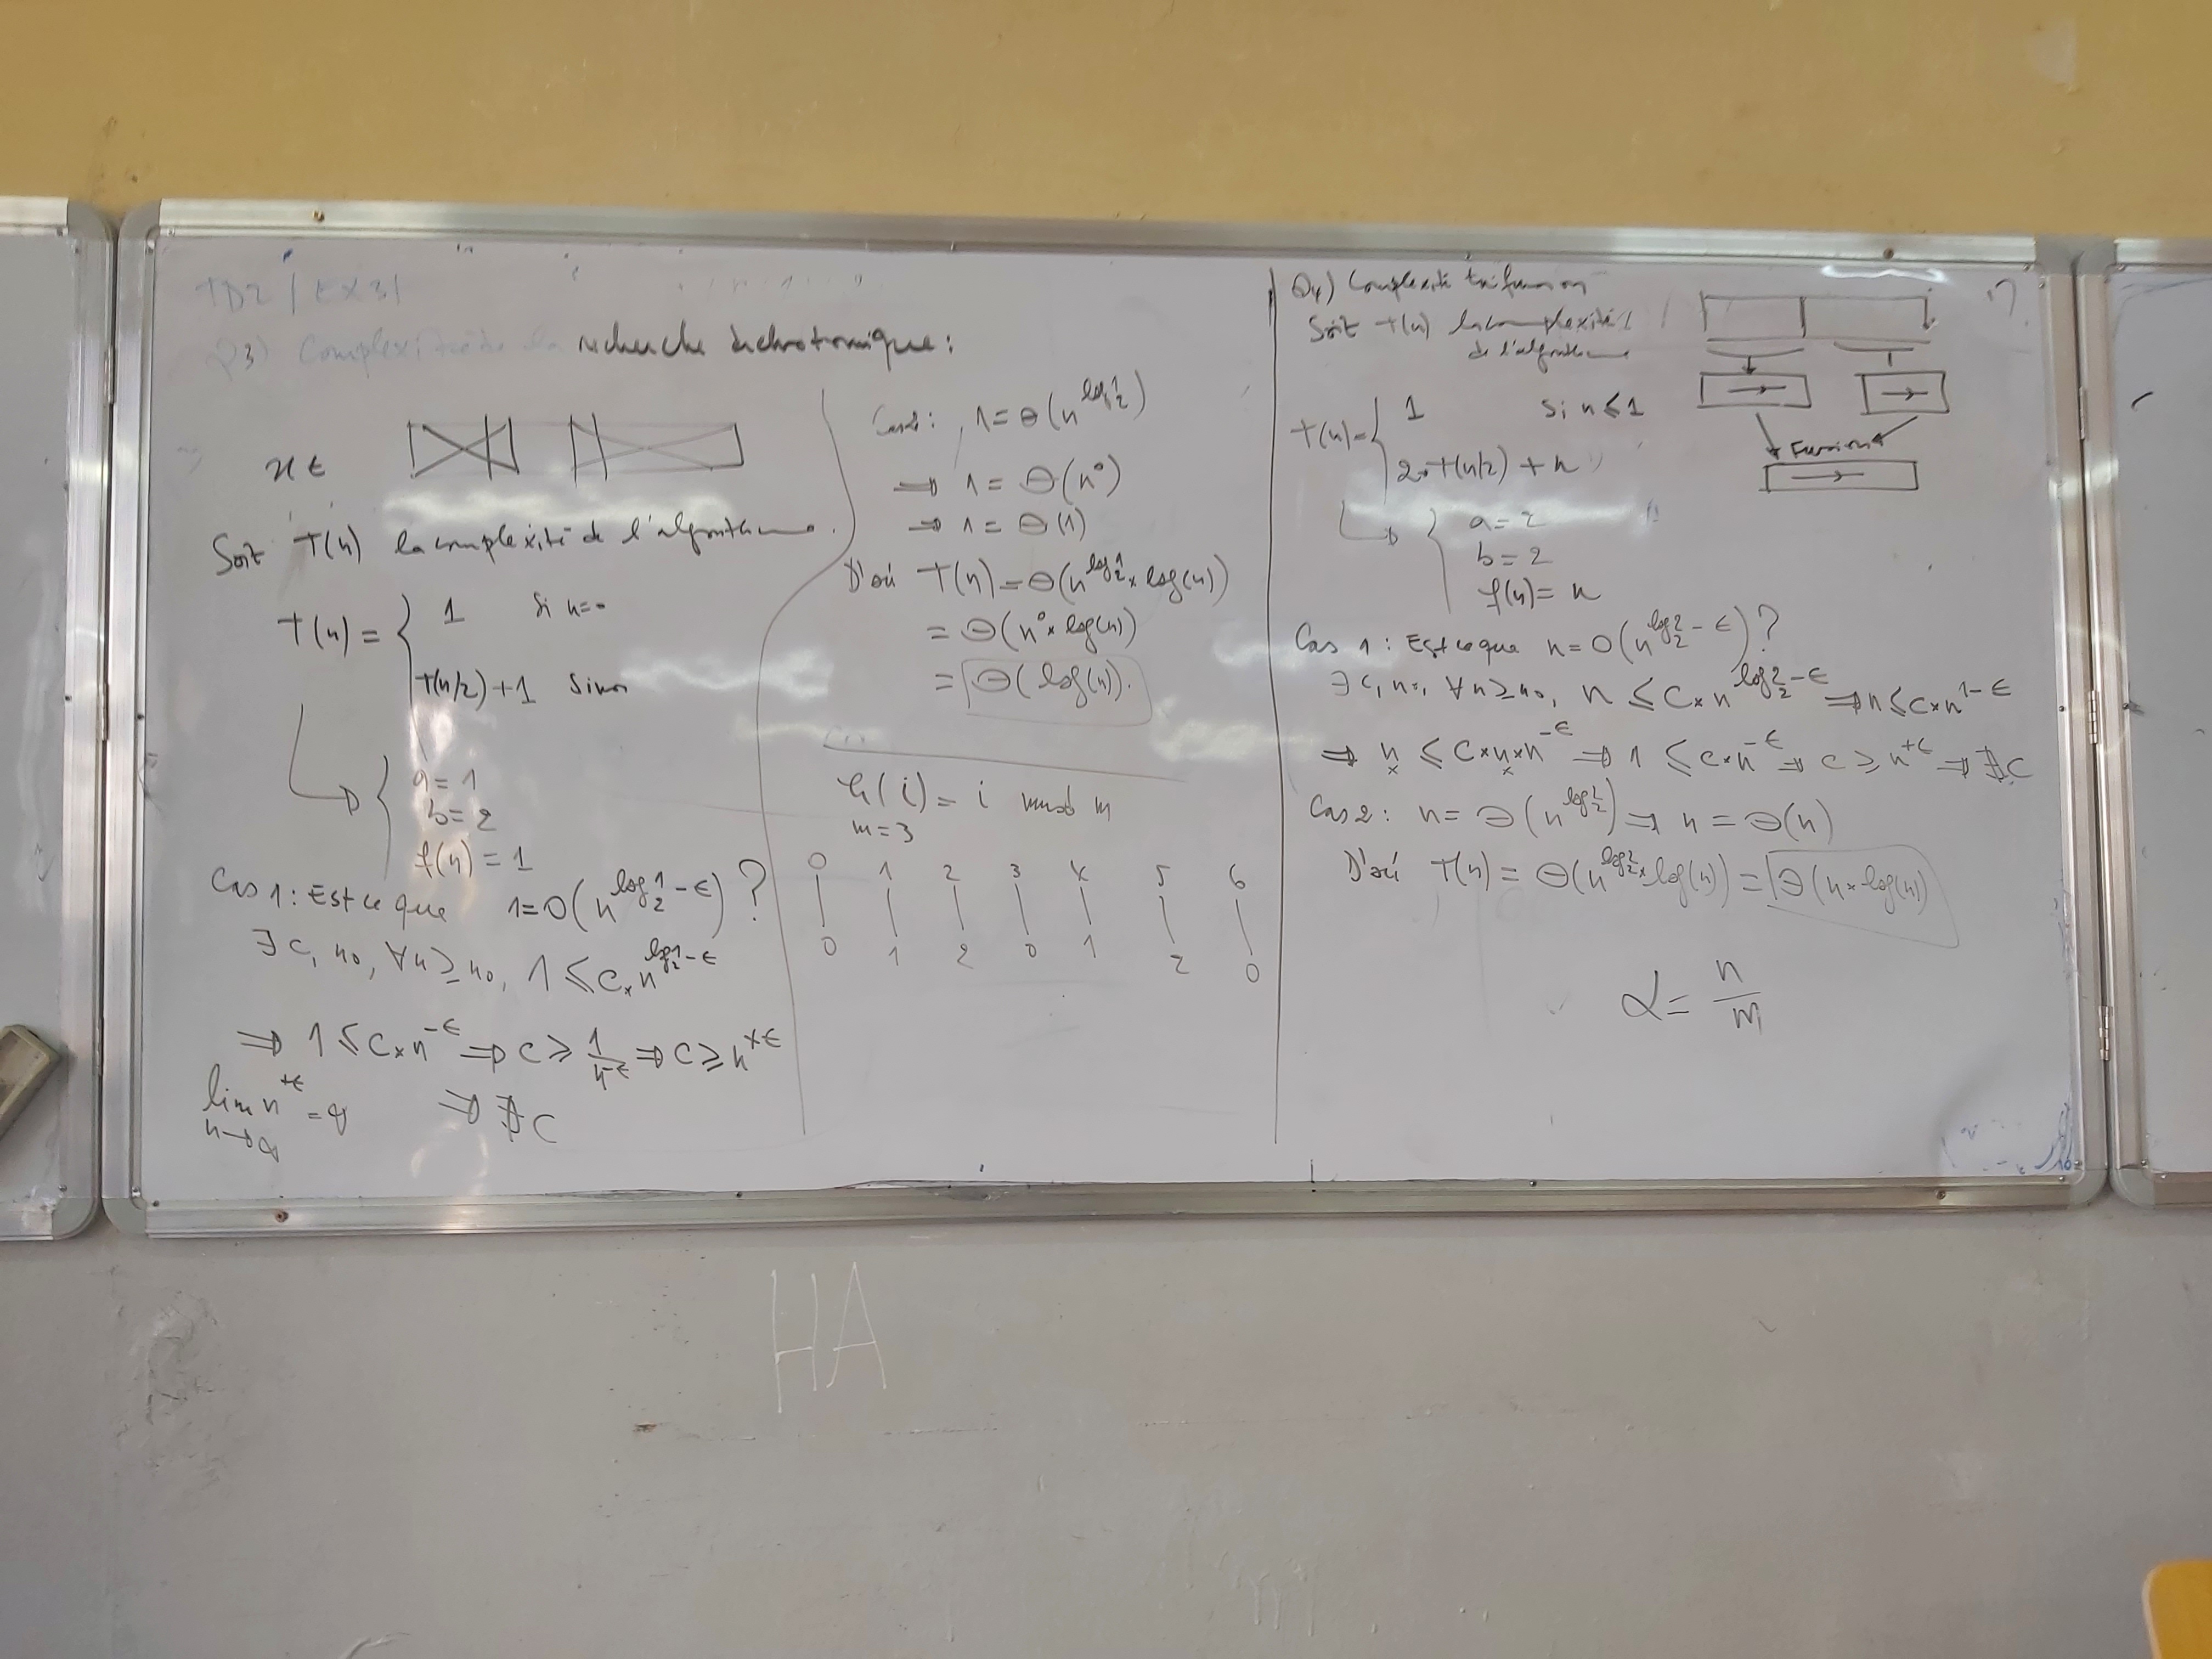 TD2 / EX3/
Q3) Complexité de la recherche dichotomique:
x ∈
Soit T(n) la complexité de l'algorithme.
T(n) = { 1 si n=0
T(n/2)+1 sinon
a = 1
b = 2
f(n) = 1
Cas 1: Est ce que 1=O(n^{log_2 1 - ε}) ?
∃ c, n0, ∀n ≥ n0, 1 ≤ c × n^{log_2 1 - ε}
⇒ 1 ≤ c × n^{-ε} ⇒ c ≥ 1/n^{-ε} ⇒ c ≥ n^{+ε}
lim n^{+ε} = ∞ ⇒ ∄ c
n→∞
Cas 2: 1 = Θ(n^{log_2 1})
⇒ 1 = Θ(n^0)
⇒ 1 = Θ(1)
D'où T(n) = Θ(n^{log_2 1} × log(n))
= Θ(n^0 × log(n))
= Θ(log(n)).
h(i) = i mod m
m = 3
0 1 2 3 4 5 6
0 1 2 0 1 2 0
Q4) Complexité tri fusion
Soit T(n) la complexité
de l'algorithme
T(n) = { 1 si n ≤ 1
2 × T(n/2) + n
a = 2
b = 2
f(n) = n
Fusion
Cas 1 : Est ce que n = O(n^{log_2 2 - ε}) ?
∃ c, n0, ∀n ≥ n0, n ≤ c × n^{log_2 2 - ε} ⇒ n ≤ c × n^{1-ε}
⇒ n ≤ c × n × n^{-ε} ⇒ 1 ≤ c × n^{-ε} ⇒ c ≥ n^{+ε} ⇒ ∄ c
Cas 2 : n = Θ(n^{log_2 2}) ⇒ n = Θ(n)
D'où T(n) = Θ(n^{log_2 2} × log(n)) = Θ(n × log(n))
α = n/m
HA